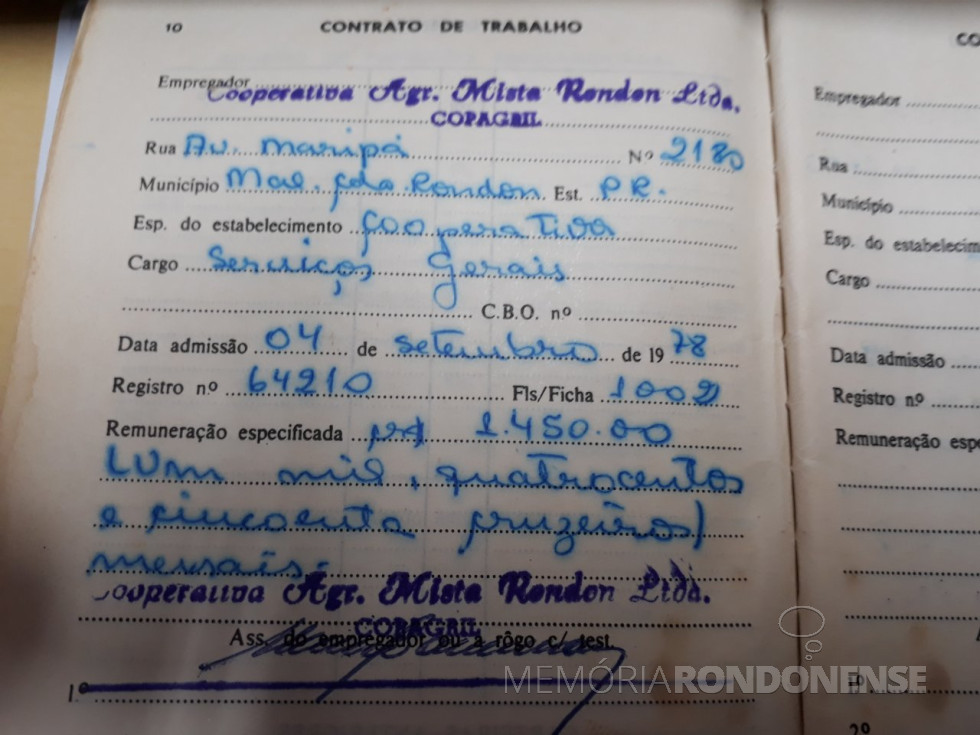 10 CONTRATO DE TRABALHO
Empregador Cooperativa Agr. Mista Rondon Ltda.
COPAGRIL
Rua Av. Maripá Nº 2180
Município Mal. Cdo Rondon Est. PR.
Esp. do estabelecimento Cooperativa
Cargo Serviços Gerais
C.B.O. nº
Data admissão 04 de setembro de 19 78
Registro nº 64210 Fls/Ficha 1002
Remuneração especificada 1.450.00
(Um mil, quatrocentos
e cincoenta cruzeiros)
mensais.
Cooperativa Agr. Mista Rondon Ltda.
COPAGRIL
Ass. do empregador ou a rôgo c/ test.
1º
CO
Empregador
Rua
Município
Esp. do estabelecim
Cargo
Data admissão
Registro nº
Remuneração espe
2º
MEMÓRIARONDONENSE